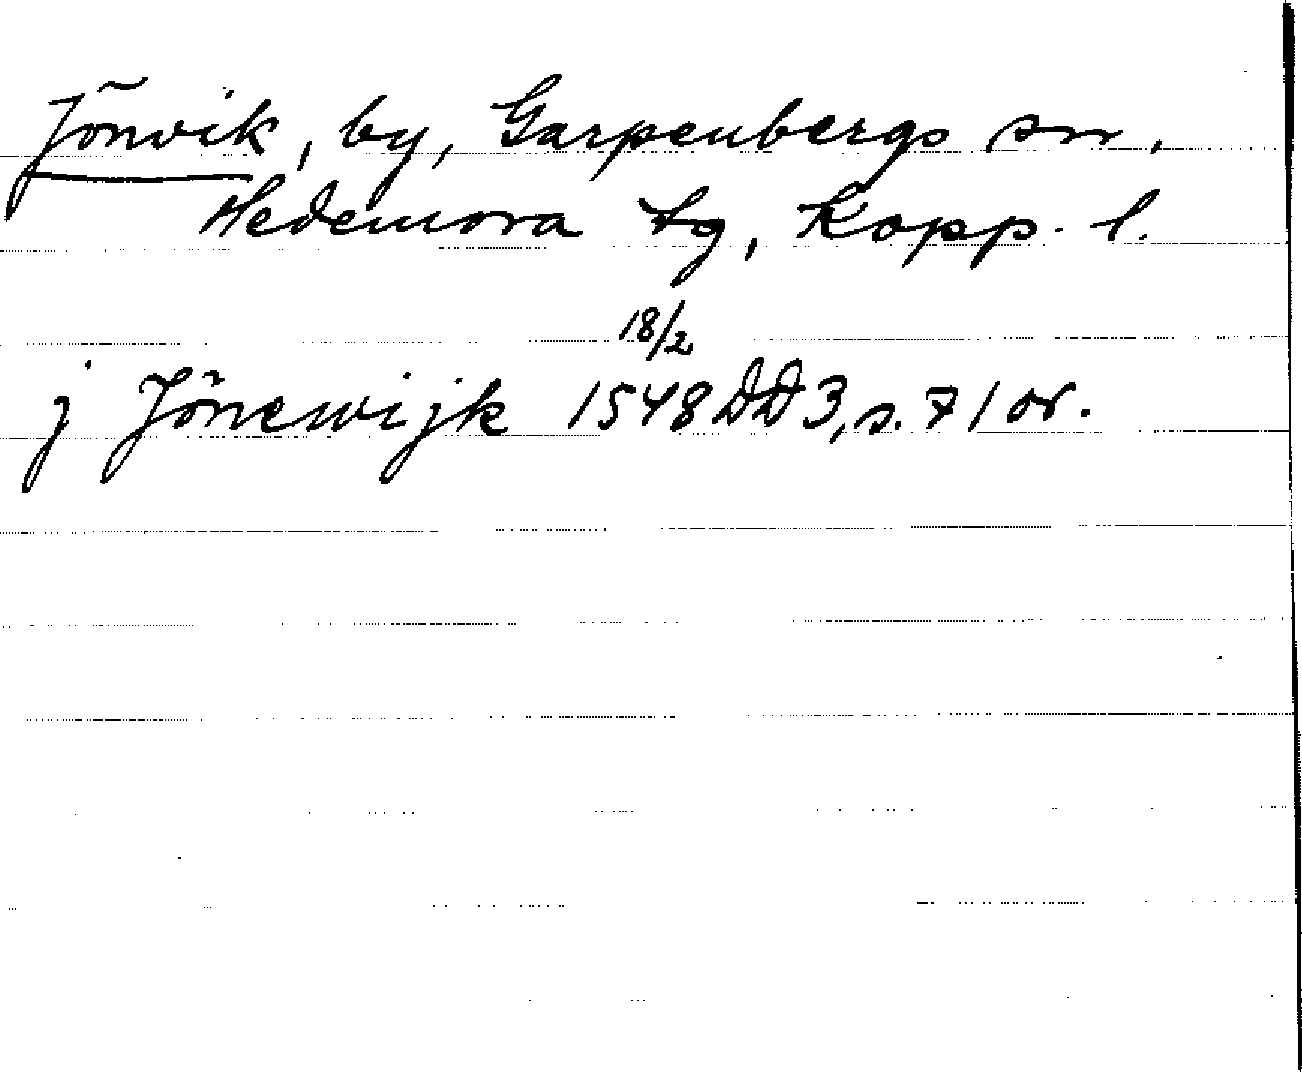 Jönvik, by, Garpenbergs sn,
Hedemora tg, Kopp. l.
18/2
j Jönewijk 1548 DD 3, s. 71 or.